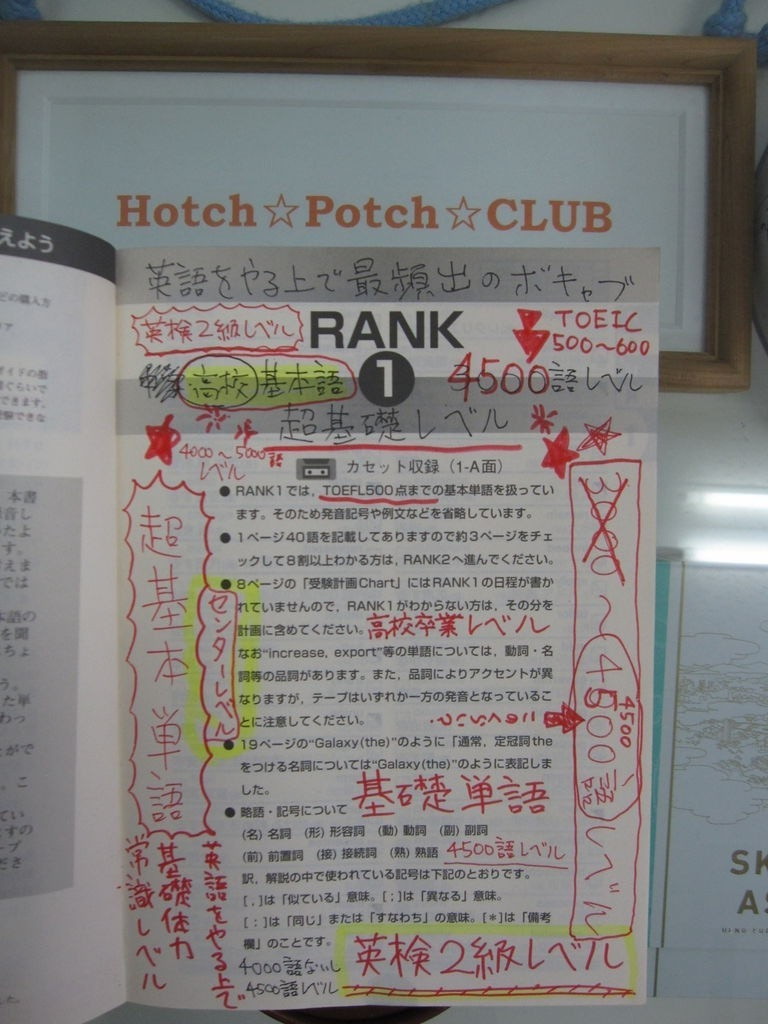 Hotch☆Potch☆CLUB
えよう
英語をやる上で最頻出のボキャブ
英検2級レベル
RANK
1
TOEIC
500〜600
高校基本語
4500語レベル
超基礎レベル
4000〜5000語
レベル
カセット収録（1-A面）
●RANK1では，TOEFL500点までの基本単語を扱ってい
ます。そのため発音記号や例文などを省略しています。
●1ページ40語を記載してありますので約3ページをチェ
ックして8割以上わかる方は，RANK2へ進んでください。
●8ページの「受験計画Chart」にはRANK1の日程が書か
れていませんので，RANK1がわからない方は，その分を
計画に含めてください。高校卒業レベル
なお"increase, export"等の単語については，動詞・名
詞等の品詞があります。また，品詞によりアクセントが異
なりますが，テープはいずれか一方の発音となっているこ
とに注意してください。
●19ページの"Galaxy(the)"のように「通常，定冠詞the
をつける名詞については"Galaxy(the)"のように表記しま
した。
基礎単語
●略語・記号について
(名) 名詞　(形) 形容詞　(動) 動詞　(副) 副詞
(前) 前置詞　(接) 接続詞　(熟) 熟語
4500語レベル
訳，解説の中で使われている記号は下記のとおりです。
[，]は「似ている」意味。[；]は「異なる」意味。
[：]は「同じ」または「すなわち」の意味。[＊]は「備考
欄」のことです。
4000語ないし
4500語レベル
英検2級レベル
超基本単語
センターレベル
英語をやる上で
基礎体力
常識レベル
3000〜4500語レベル
4500
どの購入方
本書
SK
AS